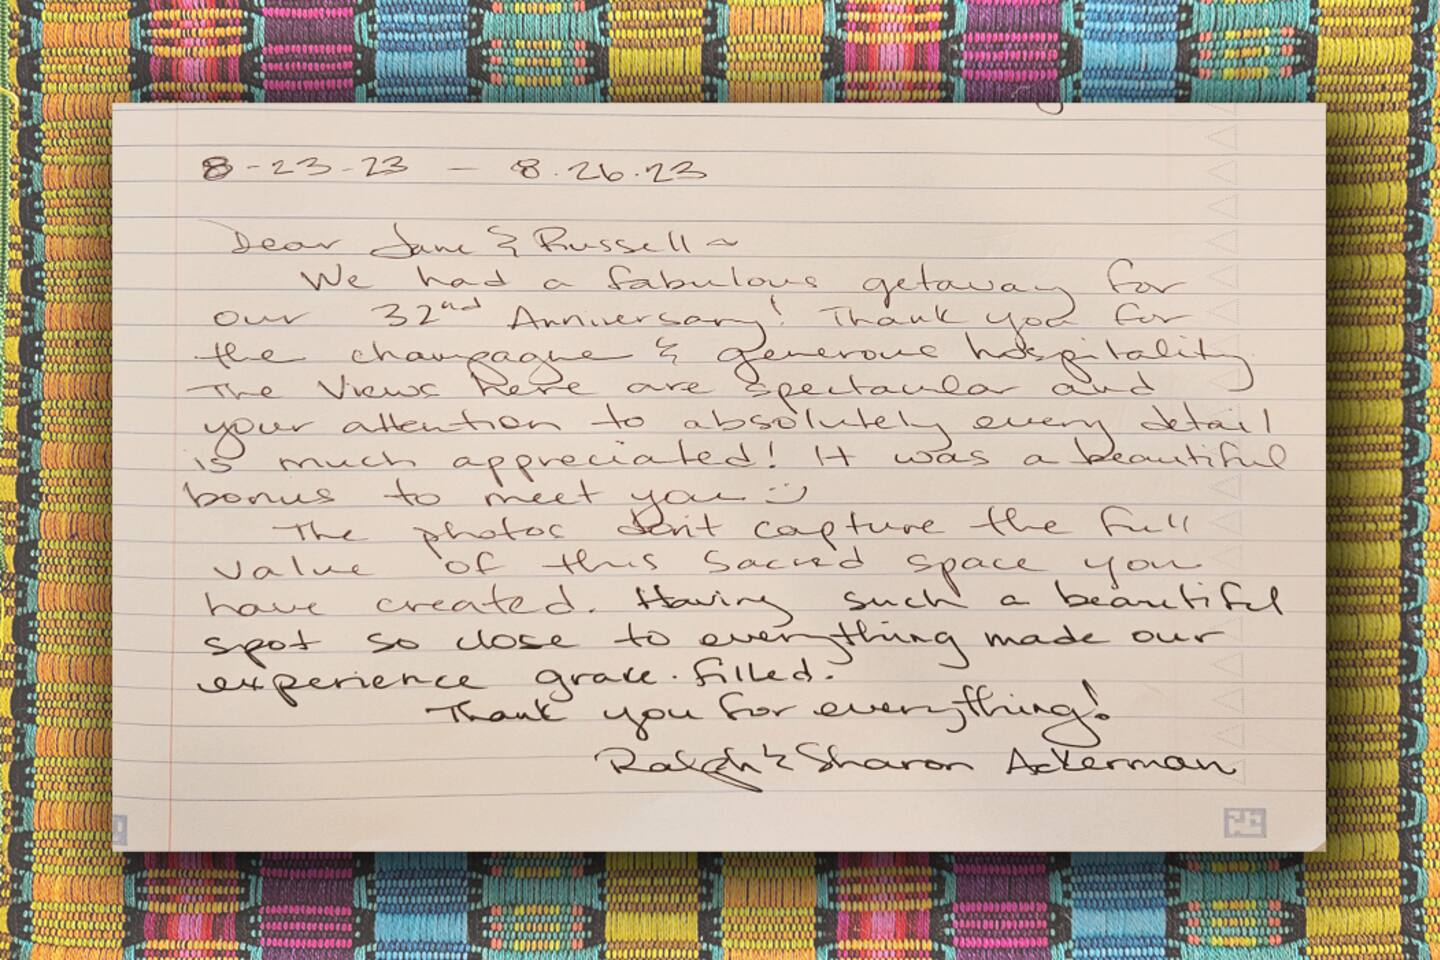 8-23-23 — 8.26.23
Dear Jane & Russell ~
We had a fabulous getaway for
our 32nd Anniversary! Thank you for
the champagne & generous hospitality
The views here are spectacular and
your attention to absolutely every detail
is much appreciated! It was a beautiful
bonus to meet you :)
The photos don't capture the full
value of this sacred space you
have created. Having such a beautiful
spot so close to everything made our
experience grace-filled.
Thank you for everything!
Ralph & Sharon Ackerman